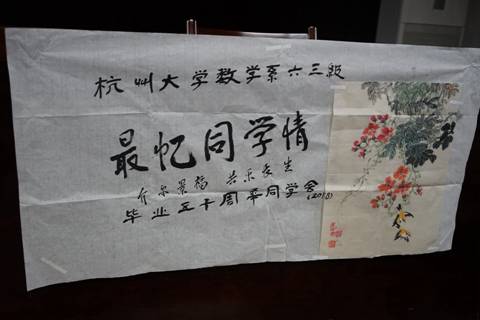 杭州大学数学系六三級
最忆同学情
介尔景福 共乐友生
毕业五十周年同学会
(2018)